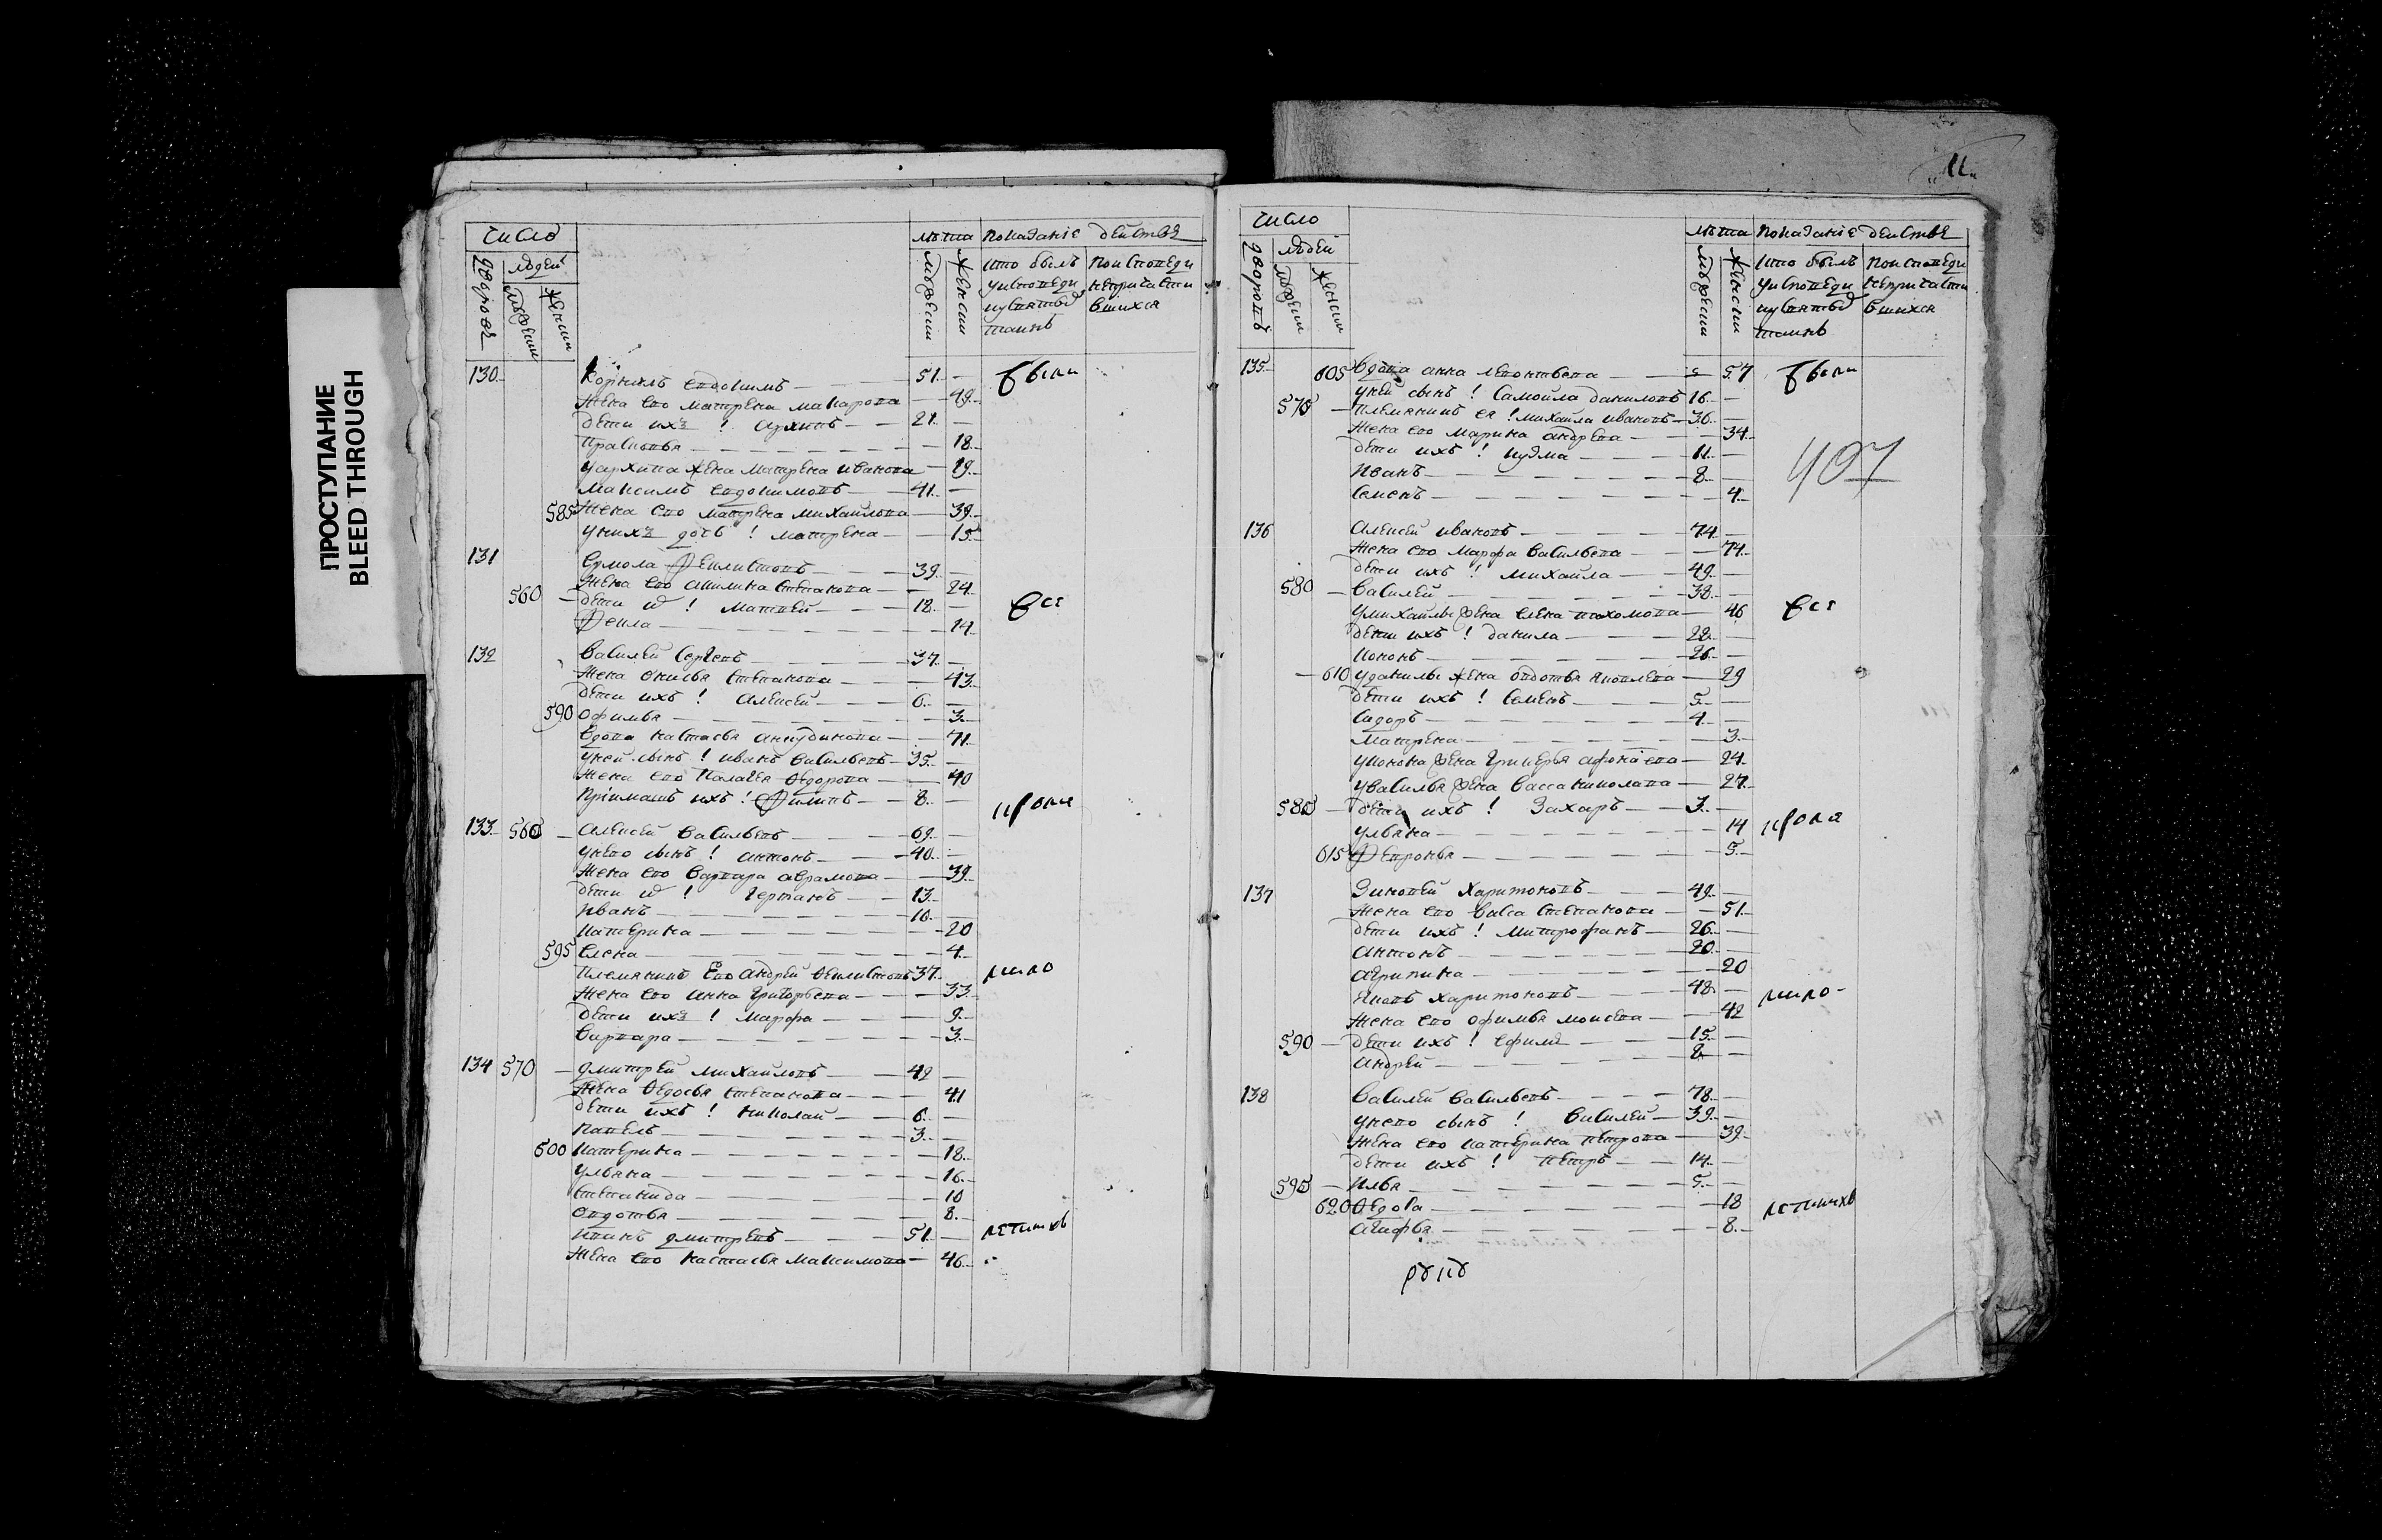 ПРОСТУПАНИЕ
BLEED THROUGH
число
дворовъ
людей
мужеск
женск
лѣта
мужеск
женск
показаніе действъ
кто былъ
у исповеди
и у святыхъ
таинъ
по исповеди
непричасти
вшихся
130 Корнилъ Евдокимъ 51
жена его матрена макарова 49
дети ихъ ! архипъ 21
Прасковья 18
у архипа жена матрена иванова 19
максимъ евдокимовъ 41
585 жена его матрена михайлова 39
у нихъ дочь ! матрена 15
131 Ермола Феклистовъ 39
жена его акилина степанова 24
560 дети и ! матвей 12
Фекла 14
132 василей сергеевъ 37
жена степанова 43
дети ихъ ! алексей 6
590 Офимья 3
вдова настасья анкудинова 71
у ней сынъ ! иванъ васильевъ 35
жена его Палагея Ѳедорова 40
Приимышъ ихъ ! Филипъ 8
133 565 алексей васильевъ 69
у него сынъ ! антонъ 40
жена его варвара аврамова 39
дети и ! 13
иванъ 10
катерина 20
595 елена 4
племянникъ его андрей Ѳеклистовъ 37
жена его анна григорьева 33
дети ихъ ! марфа 9
варвара 3
134 570 дмитрей михайловъ 42
жена Ѳедосья степанова 41
дети ихъ ! николай 6
павелъ 3
600 катерина 18
ульяна 16
степанида 10
овдотья 8
дмитревъ 51
жена его настасья максимова 46
были
все
кроме
мало
летнихъ
11
число
дворовъ
людей
мужеск
женск
лѣта
мужеск
женск
показаніе действе
кто былъ
у исповеди
и у святыхъ
таинъ
по исповеди
непричасти
вшихся
135 605 вдова анна леонтьева 57
у ней сынъ ! самойла даниловъ 16
575 племянникъ ея ! михайла ивановъ 36
жена его марина андреева 34
дети ихъ ! кузма 11
иванъ 8
семенъ 4
407
136 алексей ивановъ 74
жена его марфа васильева 74
дети ихъ ! михайла 49
580 василей 38
у михайлы жена елена пахомова 46
дети ихъ ! данила 28
кононъ 26
610 у данилы жена овдотья яковлева 29
дети ихъ ! семенъ 5
сидоръ 4
матрена 3
у конона жена афонасева 24
у василья жена васса николаева 27
585 дети ихъ ! Захаръ 3
ульяна 14
615 Февронья 5
137 Зиновей Харитоновъ 49
жена его васса степанова 51
дети ихъ ! митрофанъ 26
антонъ 20
агрипина 20
яковъ харитоновъ 48
жена его офимья моисева 42
590 дети ихъ ! ефимъ 15
андрей 8
138 василей васильевъ 78
у него сынъ ! василей 39
жена его катерина петрова 39
дети ихъ ! петръ 14
595 илья 5
620 Ѳедора 18
агафья 8
были
все
кроме
мало
летнихъ
руку